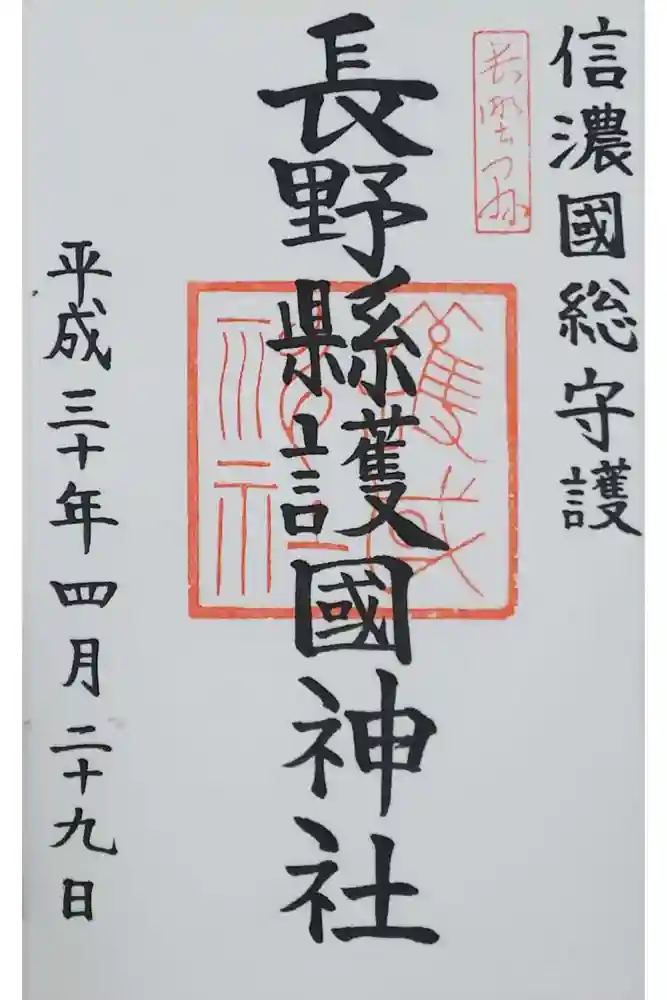 信濃國総守護
長野縣
長野縣護國神社
平成三十年四月二十九日